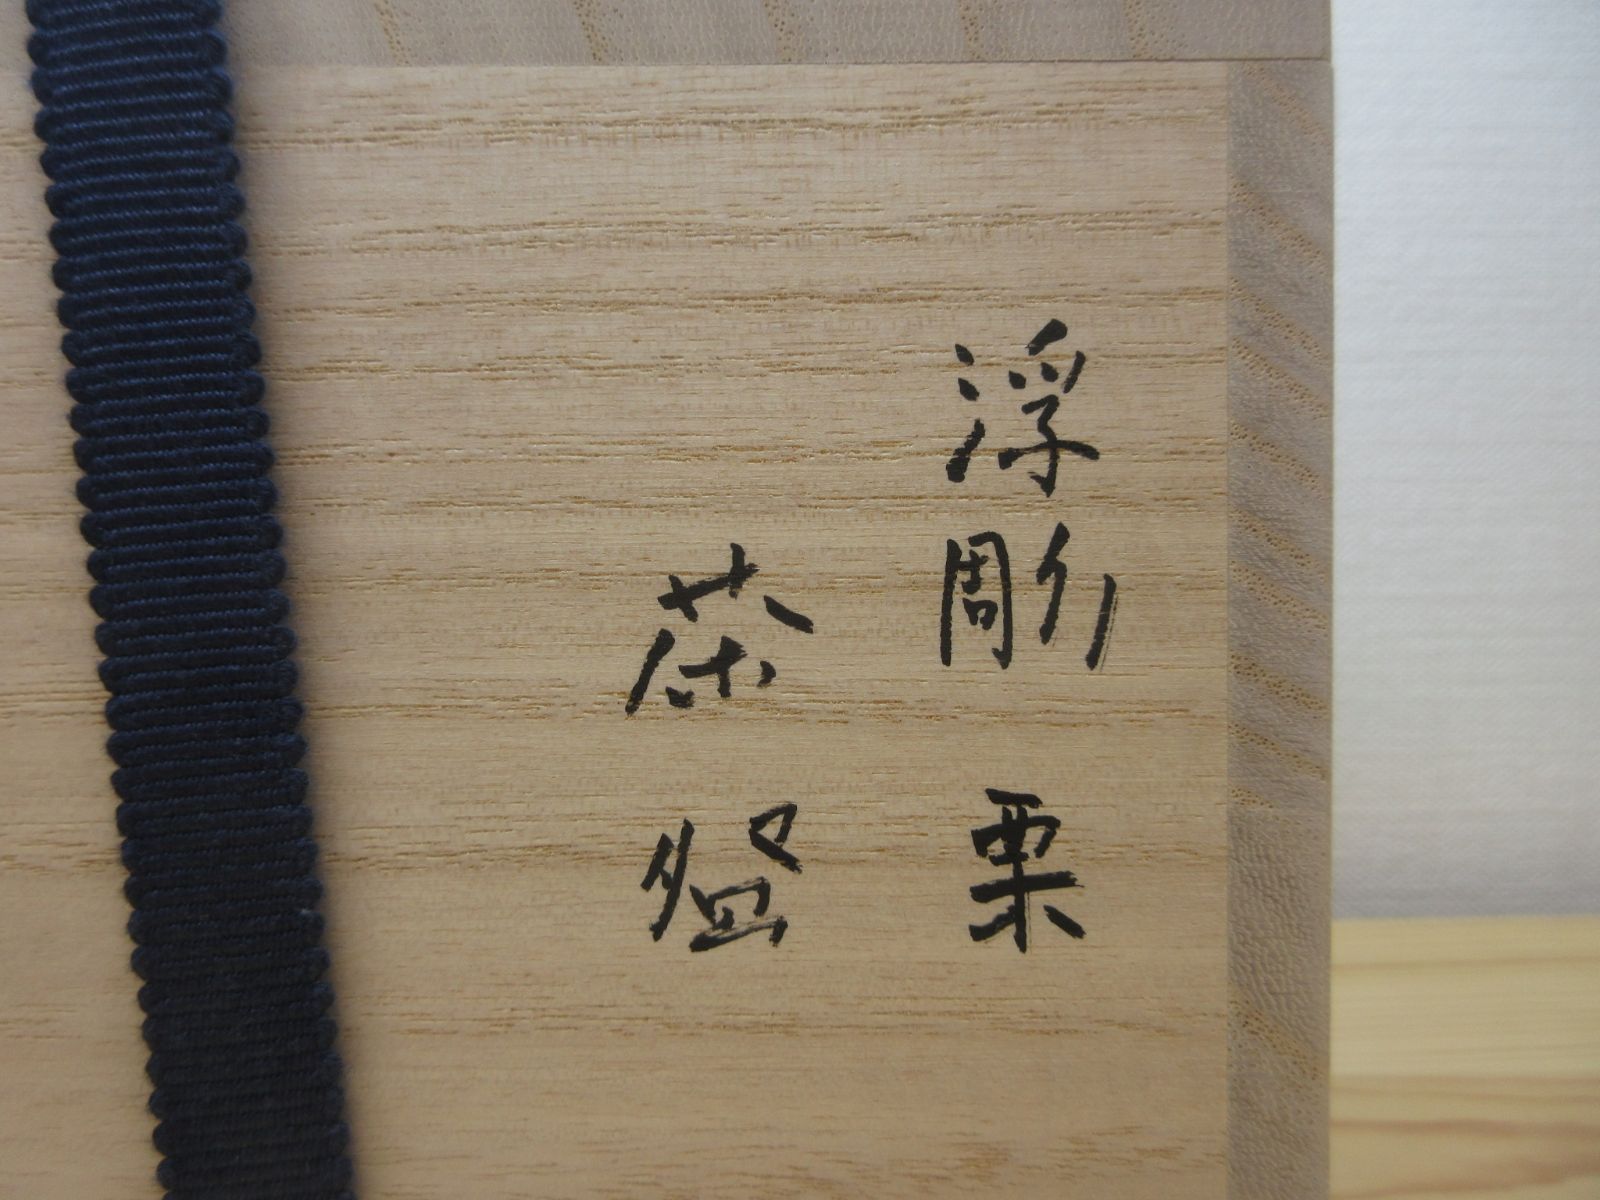 浮彫 栗
茶盌